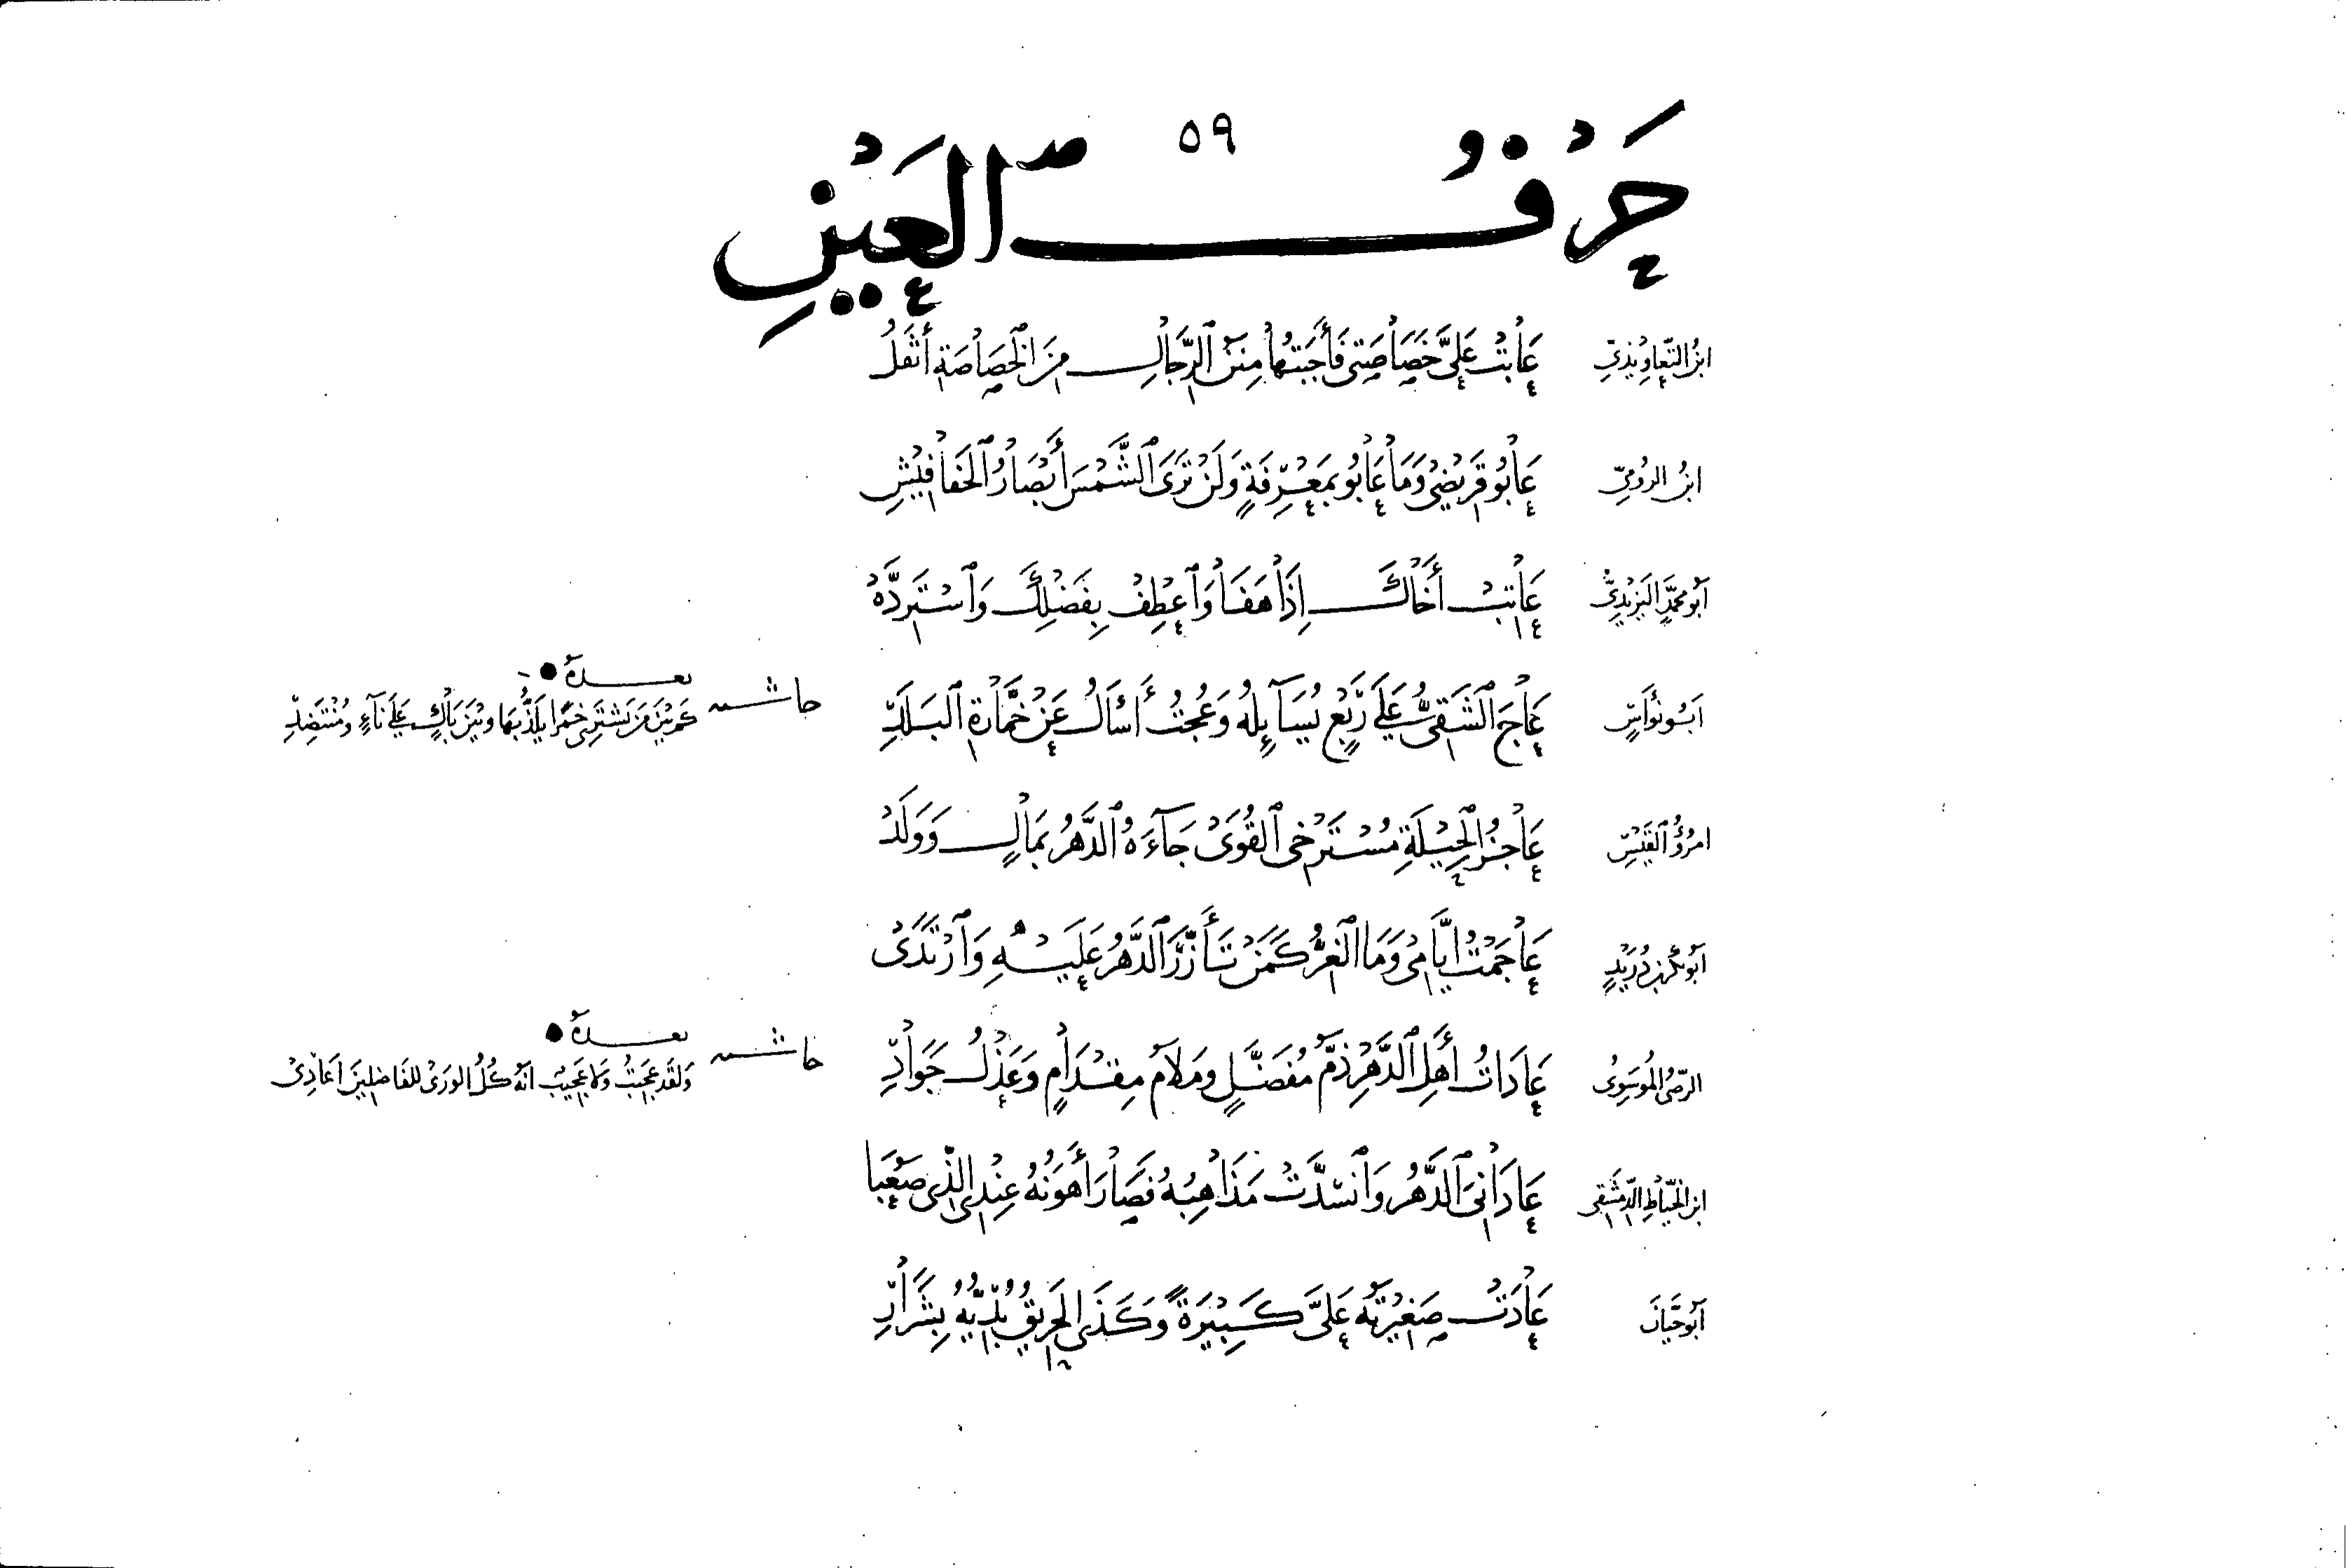 ٥٩
حَرْفُ العَيْنِ
ابنُ التّعاويذيّ عَابَتْ عَلَيَّ خَصَاصَتِي فَأَجَبْتُهَا مِنَنُ الرِّجَالِ مِنَ الْخَصَاصَةِ أَثْقَلُ
ابنُ الرُوميّ عَابُوا قَرِيْضِي وَمَا عَابُوا بِمَعْرِفَةٍ وَلَنْ تَرَى الشَّمْسَ أَبْصَارُ الْخَفَافِيْشِ
أبو محمّدٍ اليَزيْديُّ عَاتِبْ أَخَاكَ إِذَا هَفَا وَاعْطِفْ بِفَضْلِكَ وَاسْتَرِدَّهْ
أبُو نُوَاسٍ عَاجَ الشَّقِيُّ عَلَى رَبْعٍ يُسَآئِلُهُ وَعُجْتُ أَسْأَلُ عَنْ خَمَّارَةِ الْبَلَدِ
حاشية بعده
كَمْ بَيْنَ مَنْ يَشْتَرِي خَمْرًا يَلَذُّ بِهَا وَبَيْنَ بَاكٍ عَلَى نَآءٍ وَمُنْتَضِدِ
امرُؤُ القَيْسِ عَاجِزُ الْحِيْلَةِ مُسْتَرْخِي الْقُوَى جَآءَهُ الدَّهْرُ بِمَالٍ وَوَلَدْ
أبو بكر بن دُرَيْدٍ عَاجَمْتُ أَيَّامِي وَمَا الْغِرُّ كَمَنْ تَأَزَّرَ الدَّهْرُ عَلَيْهِ وَارْتَدَى
الرّضيُّ المُوسَوِيُ عَادَاتُ أَهْلِ الدَّهْرِ ذَمُّ مُفَضَّلٍ وَمَلَامُ مِقْدَامٍ وَعَذْلُ جَوَادِ
حاشية بعده
وَلَقَدْ عَجِبْتُ وَلَا عَجِيْبَ أَنَّهُ كُلُّ الْوَرَى لِلْفَاضِلِيْنَ أَعَادِي
ابن الخيّاطِ الدّمَشقي عَادَانِيَ الدَّهْرُ وَانْسَدَّتْ مَذَاهِبُهُ فَصَارَ أَهْوَنُهُ عِنْدِي الَّذِي صَعُبَا
أبو حَيَّانَ عَادَتْ صَغِيْرَتُهُ عَلَيَّ كَبِيْرَةً وَكَذَى الْحَرِيْقُ بُدِيُّهُ بِشَرَارِ